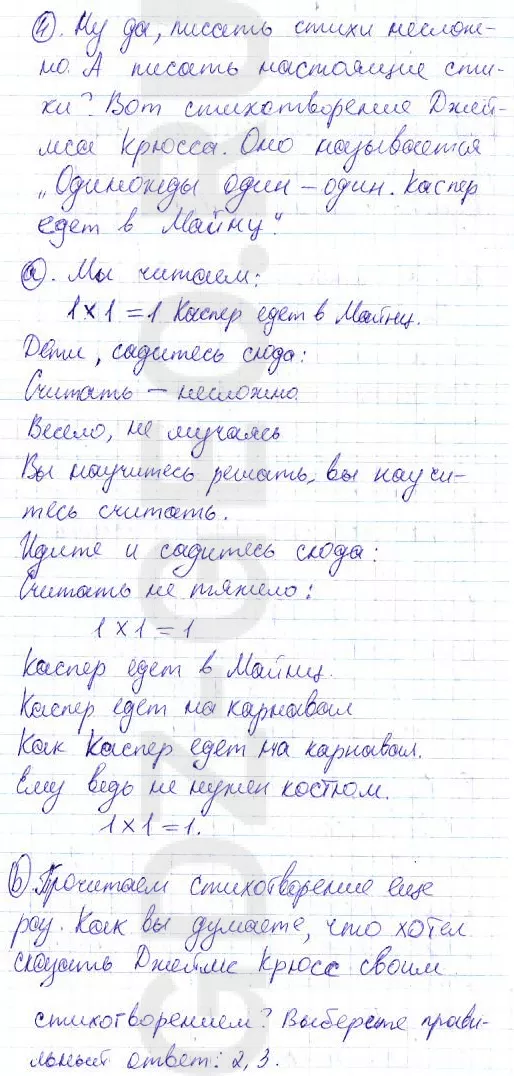 4. Ну да, писать стихи неслож-
но. А писать настоящие сти-
хи? Вот стихотворение Джей-
мса Крюсса. Оно называется
„Одиножды один – один. Каспер
едет в Майнц".
a. Мы читаем:
1 × 1 = 1 Каспер едет в Майнц.
Дети, садитесь сюда:
Считать – несложно
Весело, не мучаясь
Вы научитесь решать, вы научи-
тесь считать.
Идите и садитесь сюда:
Считать не тяжело:
1 × 1 = 1
Каспер едет в Майнц.
Каспер едет на карнавал
Как Каспер едет на карнавал.
Ему ведь не нужен костюм.
1 × 1 = 1.
b. Прочитаем стихотворение еще
раз. Как вы думаете, что хотел
сказать Джеймс Крюсс своим
стихотворением? Выберете прави-
льный ответ: 2, 3.
GDZ-GEO.RU